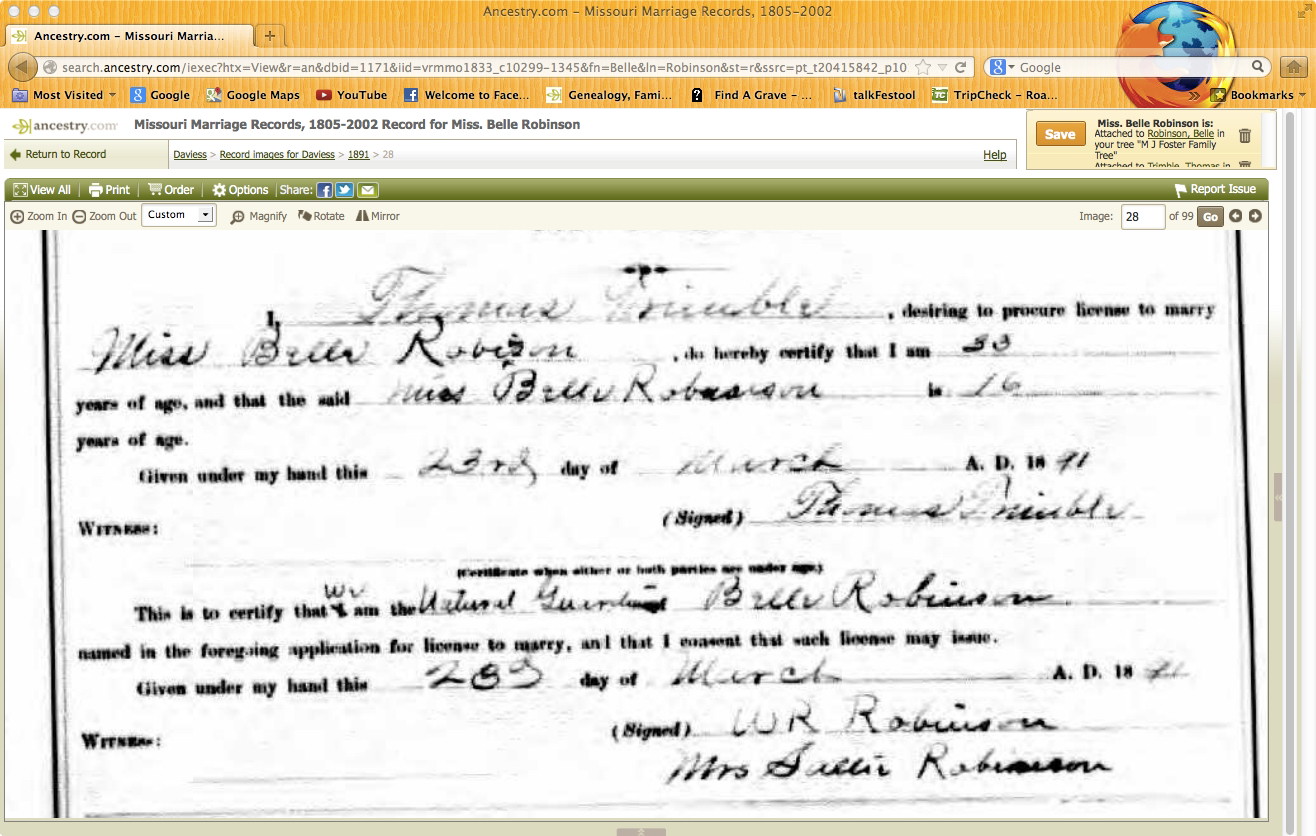 Ancestry.com – Missouri Marriage Records, 1805–2002
Ancestry.com – Missouri Marria...
search.ancestry.com/iexec?htx=View&r=an&dbid=1171&iid=vrmmo1833_c10299-1345&fn=Belle&ln=Robinson&st=r&ssrc=pt_t20415842_p10
Google
Most Visited Google Google Maps YouTube Welcome to Face... Genealogy, Fami... Find A Grave – ... talkFestool TripCheck – Roa... » Bookmarks
ancestry.com Missouri Marriage Records, 1805-2002 Record for Miss. Belle Robinson
Return to Record
Daviess > Record images for Daviess > 1891 > 28
Help
Save
Miss. Belle Robinson is:
Attached to Robinson, Belle in
your tree "M J Foster Family
Tree"
Attached to Trimble, Thomas in
View All Print Order Options Share: Report Issue
Zoom In Zoom Out Custom Magnify Rotate Mirror Image: 28 of 99 Go
I, Thomas Trimble, desiring to procure license to marry
Miss Belle Robison, do hereby certify that I am 33
years of age, and that the said Miss Belle Robinson is 16
years of age.
Given under my hand this 23rd day of March A. D. 1891
WITNESS: (Signed) Thomas Trimble
(Certificate when either or both parties are under age.)
We
This is to certify that I am the Natural Guardian Belle Robinson
named in the foregoing application for license to marry, and that I consent that such license may issue.
Given under my hand this 23 day of March A. D. 1891
(Signed) WR Robinson
WITNESS:
Mrs Sallie Robinson